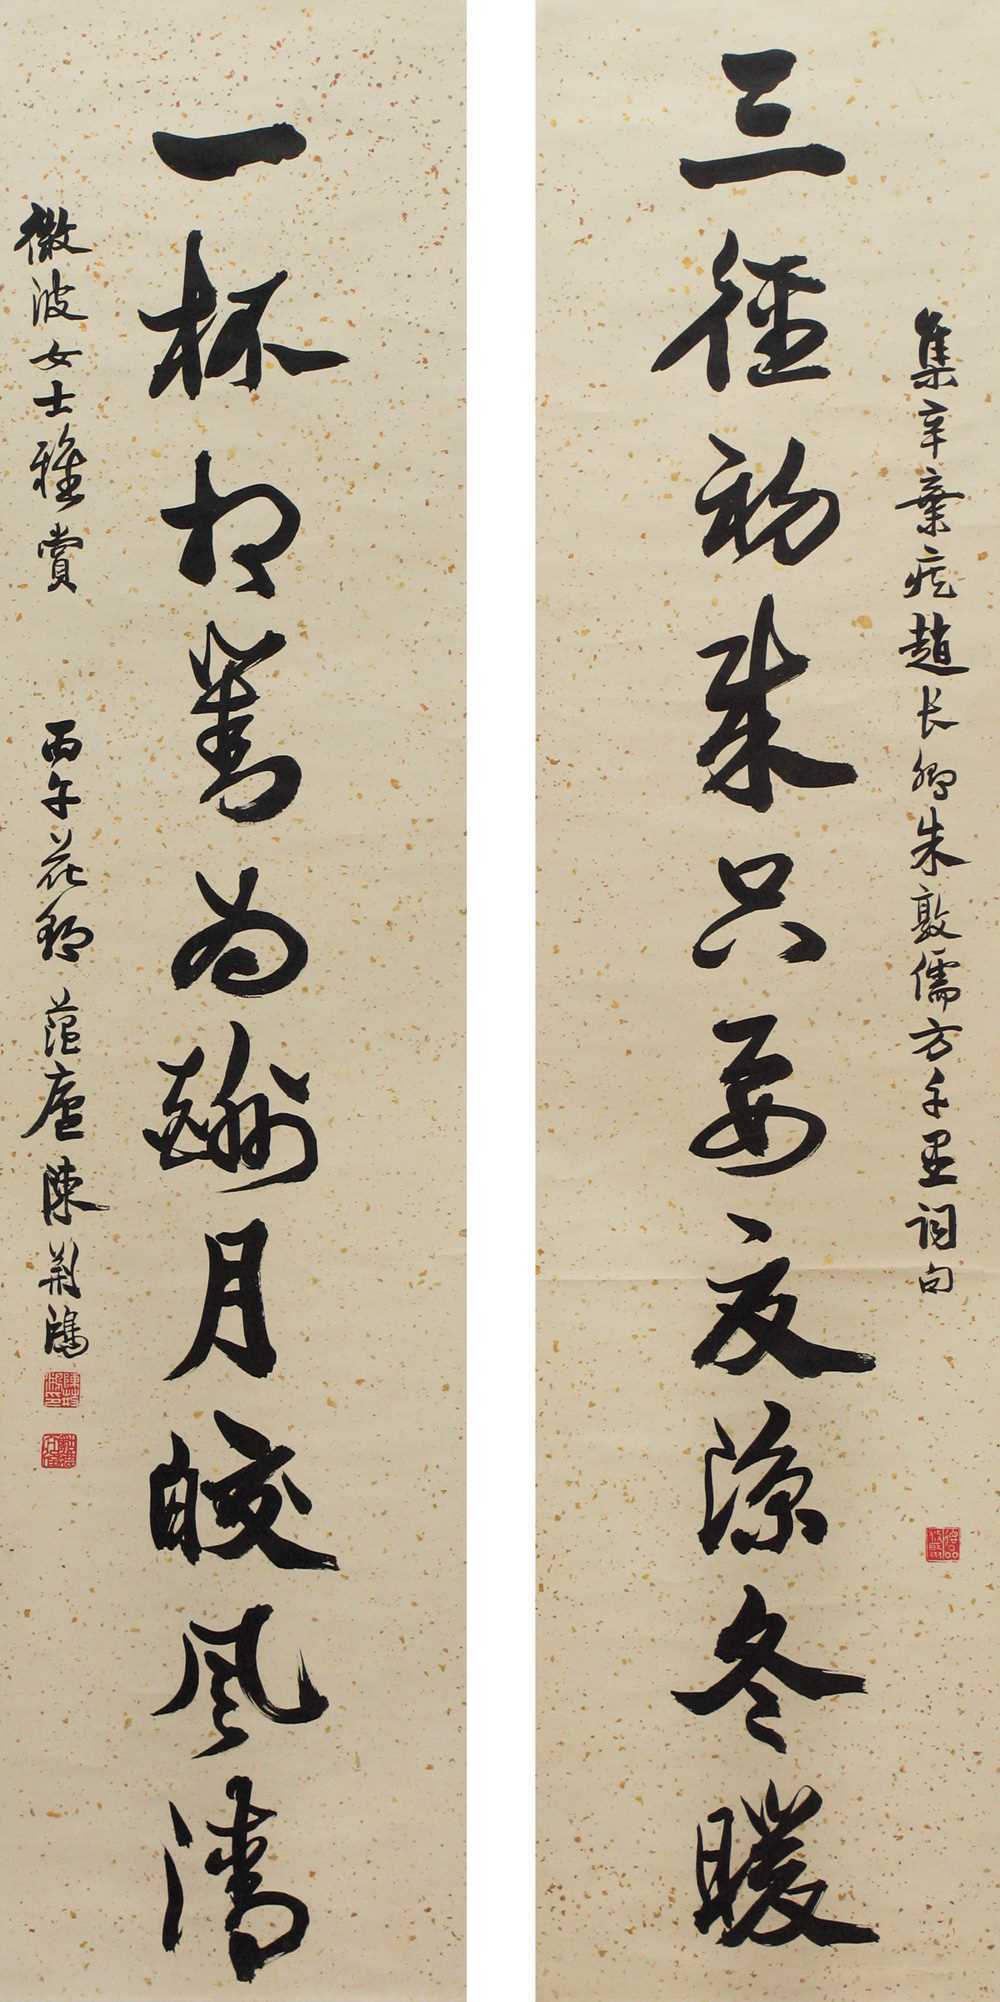 三徑初成只要夏涼冬暖
集辛棄疾趙长卿朱敦儒方千里詞句
一杯相對為酬月皎風清
微波女士雅賞
丙午花朝蒀廬陳荊鴻